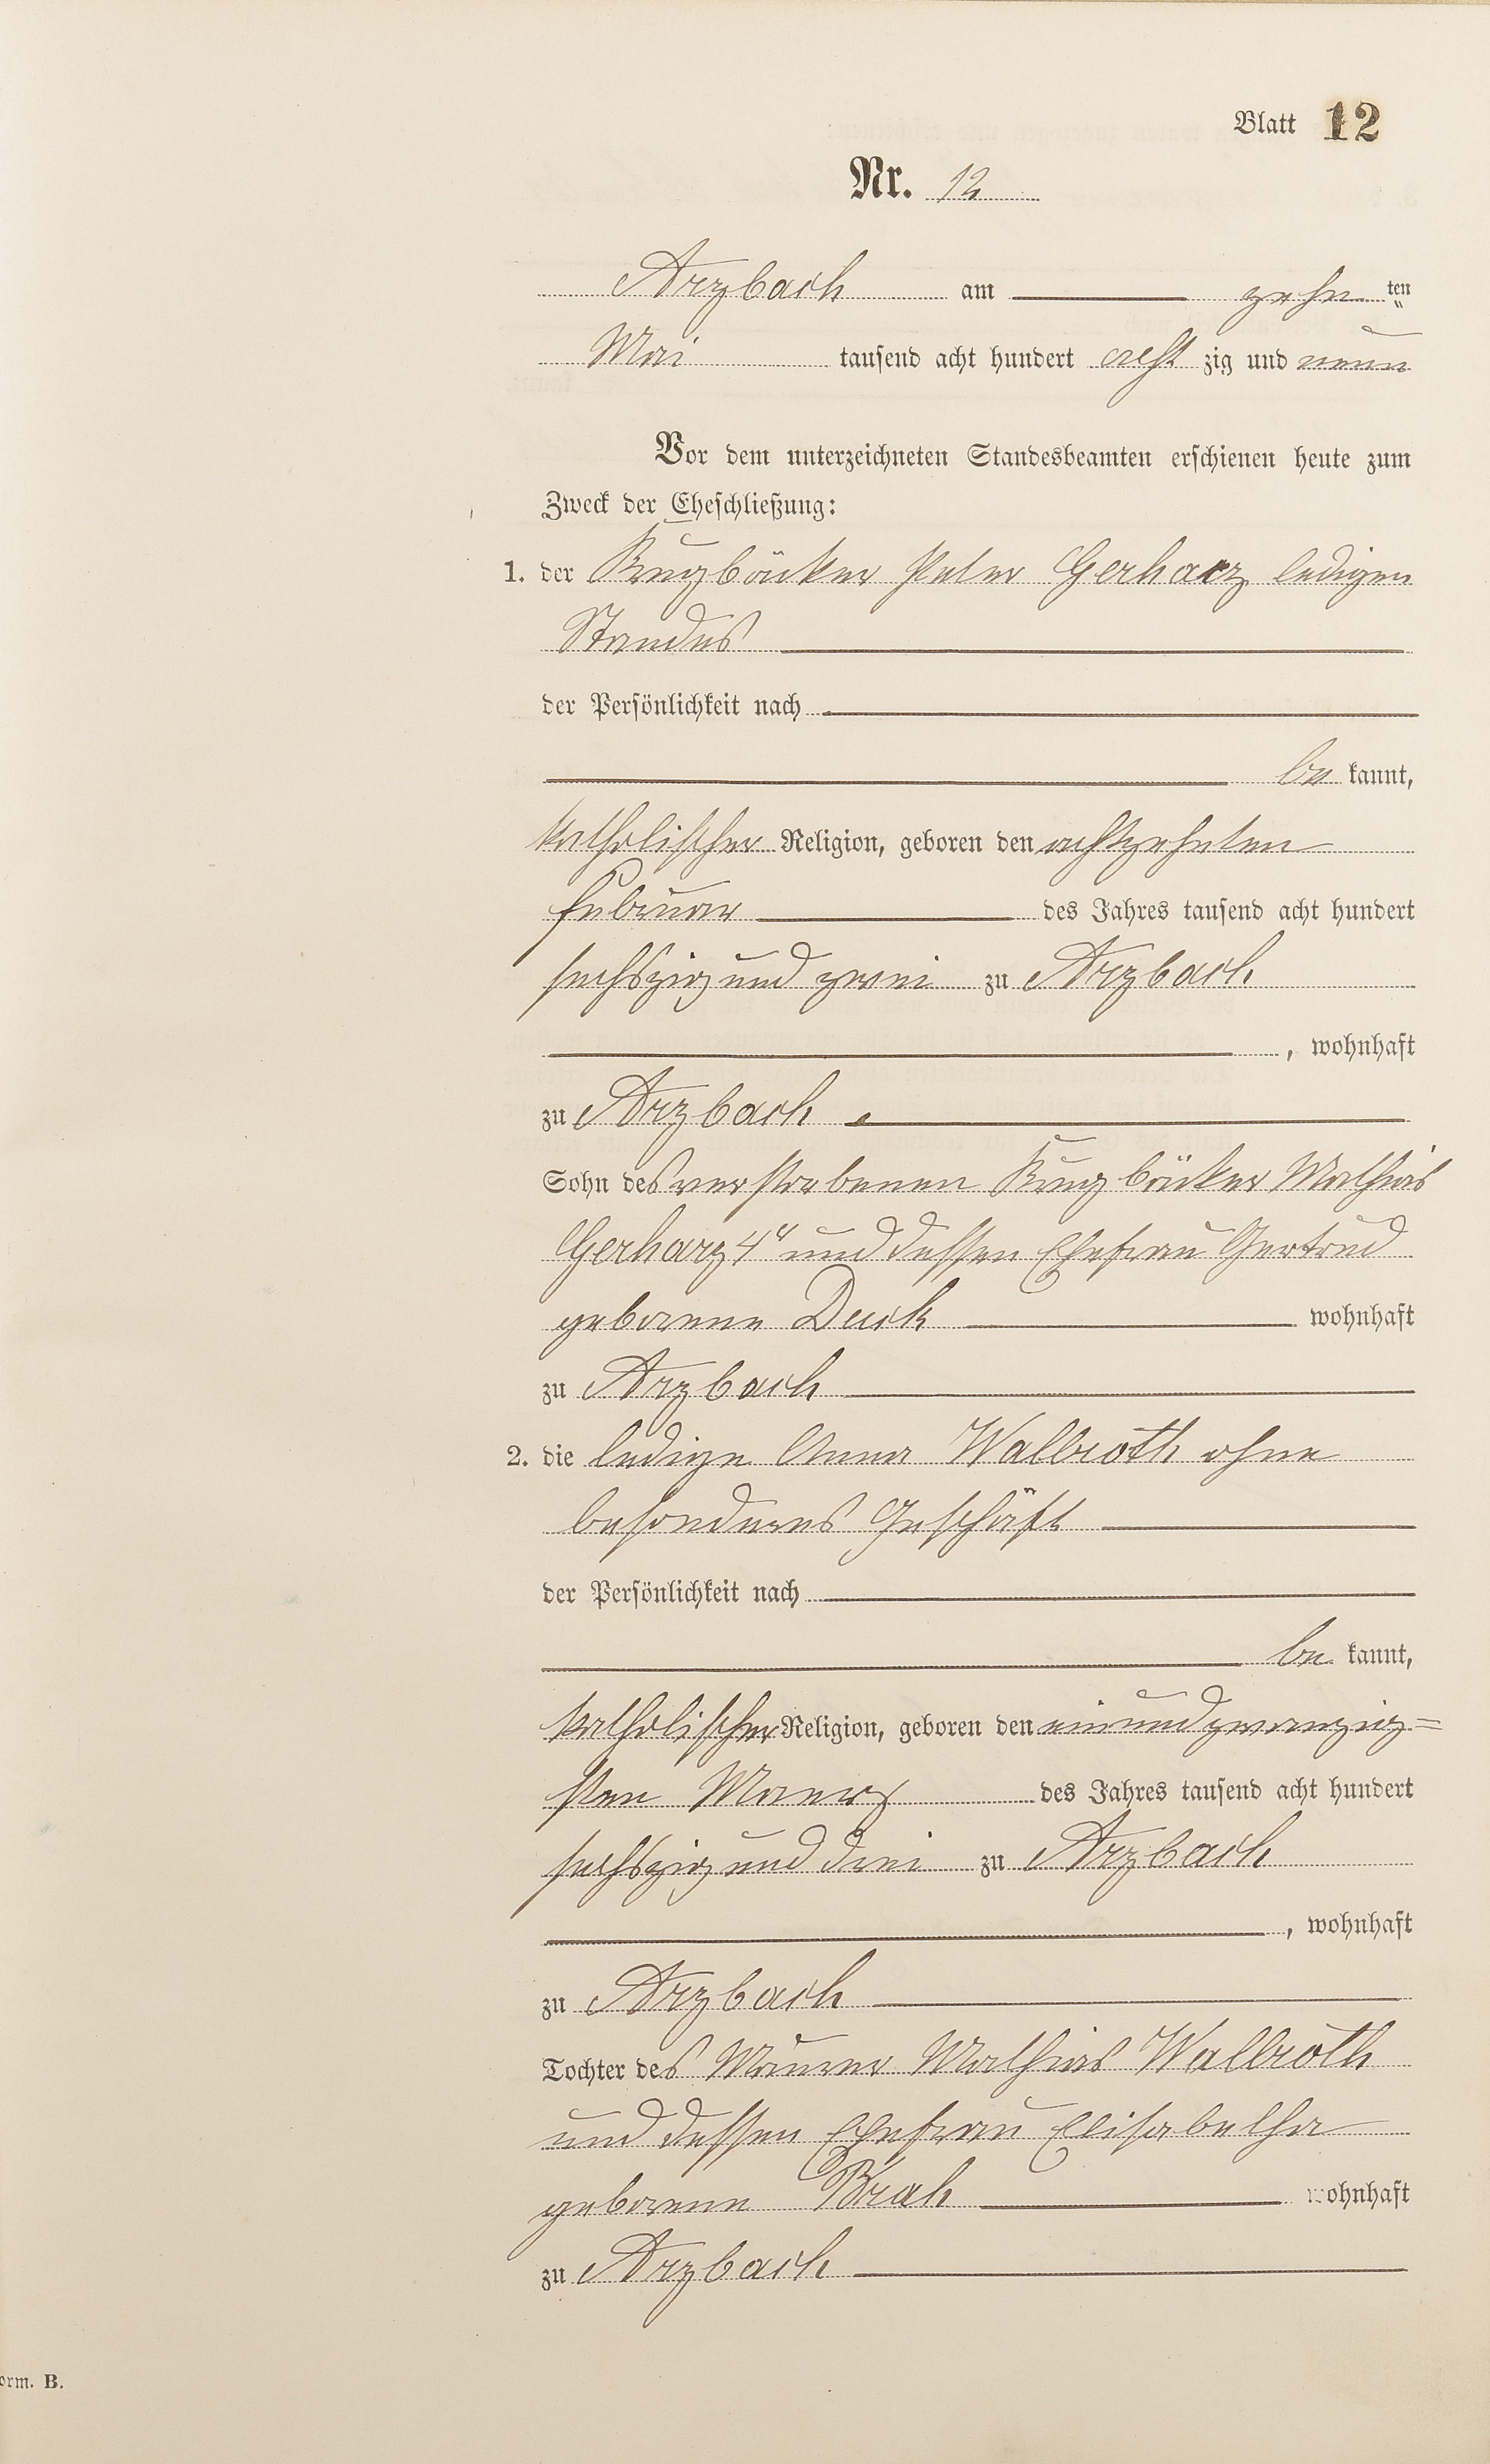 Blatt 12
Nr. 12
Arzbach am zehn ten
Mai tausend acht hundert acht zig und neun
Vor dem unterzeichneten Standesbeamten erschienen heute zum
Zweck der Eheschließung:
1. der Krugbäcker Peter Gerharz ledigen
Standes
der Persönlichkeit nach
be kannt,
katholischer Religion, geboren den achtzehnten
Februar des Jahres tausend acht hundert
sechszig und zwei zu Arzbach
, wohnhaft
zu Arzbach
Sohn des verstorbenen Krugbäcker Mathias
Gerharz 4" und dessen Ehefrau Gertrud
geborene Duck wohnhaft
zu Arzbach
2. die ledige Anna Wallroth ohne
besonderes Geschäft
der Persönlichkeit nach
be kannt,
katholischer Religion, geboren den einundzwanzig=
sten Maerz des Jahres tausend acht hundert
sechszig und drei zu Arzbach
, wohnhaft
zu Arzbach
Tochter des Maurer Mathias Wallroth
und dessen Ehefrau Elisabetha
geborene Brah wohnhaft
zu Arzbach
orm. B.